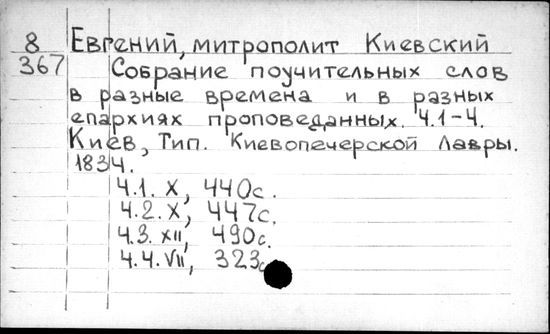 8 Евгений, митрополит Киевский
367 Собрание поучительных слов
в разные времена и в разных
епархиях проповеданных. Ч.1-4.
Киев, Тип. Киевопечерской Лавры.
1834.
Ч.1. X, 440с.
Ч.2. X, 447с.
Ч.3. XII, 490с.
Ч.4. VII, 323с